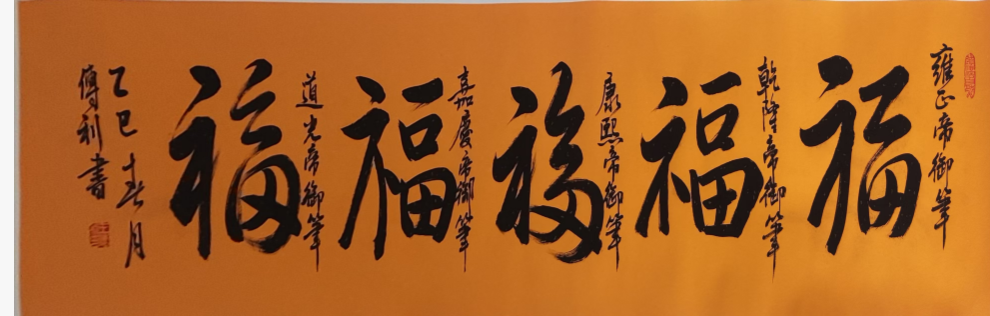 雍正帝御筆
福
乾隆帝御筆
福
康熙帝御筆
福
嘉慶帝御筆
福
道光帝御筆
福
乙巳春月
傅利書